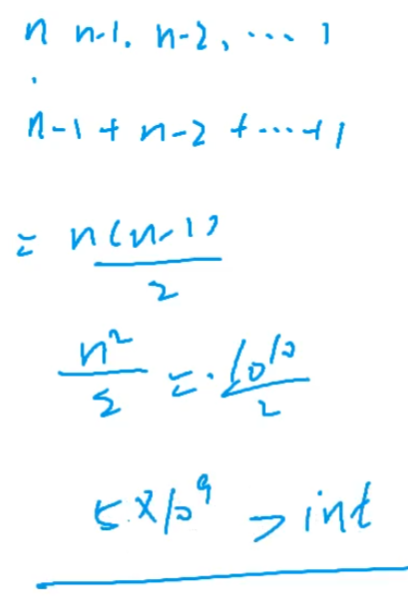 n n-1, n-2, ... 1
n-1 + n-2 + ... + 1
= n(n-1)
2
n²
2
= 10¹⁰
2
5×10⁹ > int